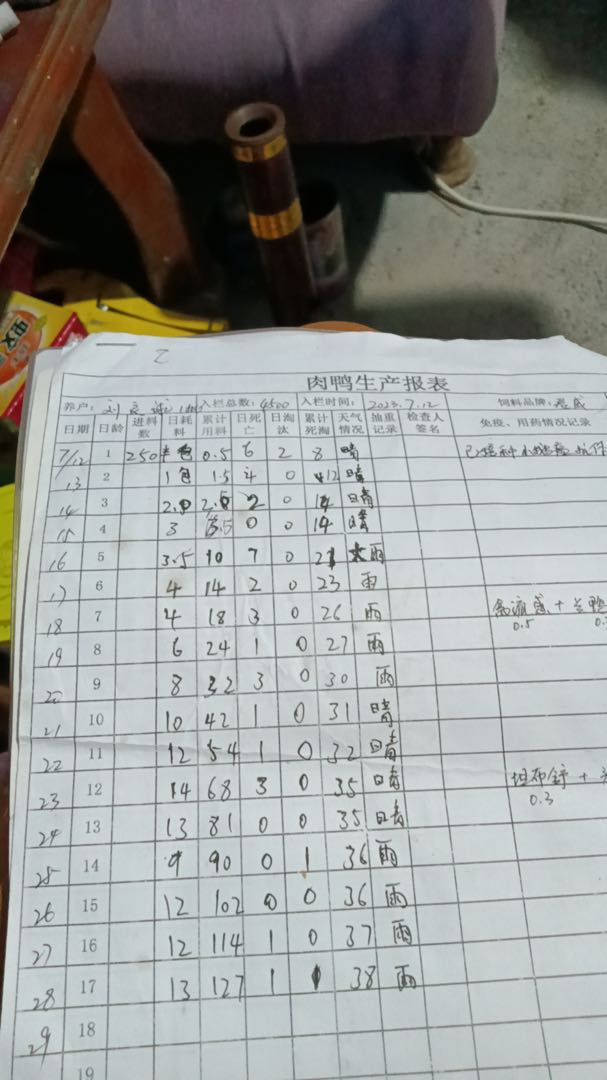 乙
肉鸭生产报表
养户: 刘 入栏总数: 4500 入栏时间: 2023.7.12 饲料品牌:
日期 日龄 进料数 日耗料 累计用料 日死亡 日淘汰 累计死淘 天气情况 抽重记录 检查人签名 免疫、用药情况记录
7/12 1 250 半包 0.5 6 2 8 晴 已接种小
13 2 1包 1.5 4 0 12 晴
14 3 2.0 2 0 14 晴
15 4 3 0 0 14 晴
16 5 3.5 10 7 0 21 雨
17 6 4 14 2 0 23 雨
18 7 4 18 3 0 26 雨 禽流感 +
0.5
19 8 6 24 1 0 27 雨
20 9 8 32 3 0 30 雨
21 10 10 42 1 0 31 晴
22 11 12 54 1 0 32 晴
23 12 14 68 3 0 35 晴 坦布舒 +
0.3
24 13 13 81 0 0 35 晴
25 14 9 90 0 1 36 雨
26 15 12 102 0 0 36 雨
27 16 12 114 1 0 37 雨
28 17 13 127 1 38 雨
29 18
19